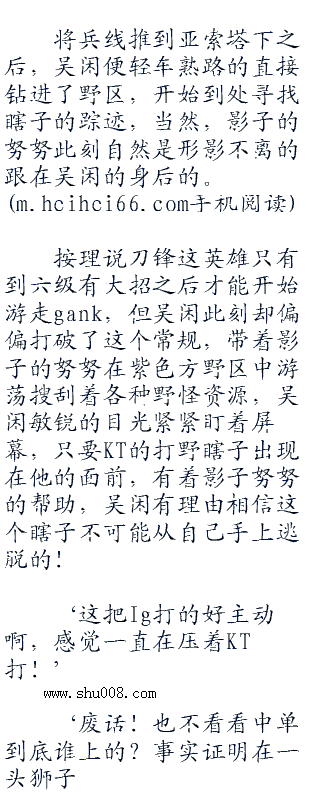 将兵线推到亚索塔下之
后，吴闲便轻车熟路的直接
钻进了野区，开始到处寻找
瞎子的踪迹，当然，影子的
努努此刻自然是形影不离的
跟在吴闲的身后的。
(m.hcihci66.com手机阅读)
按理说刀锋这英雄只有
到六级有大招之后才能开始
游走gank，但吴闲此刻却偏
偏打破了这个常规，带着影
子的努努在紫色方野区中游
荡搜刮着各种野怪资源，吴
闲敏锐的目光紧紧盯着屏
幕，只要KT的打野瞎子出现
在他的面前，有着影子努努
的帮助，吴闲有理由相信这
个瞎子不可能从自己手上逃
脱的！
‘这把Ig打的好主动
啊，感觉一直在压着KT
打！’
www.shu008.com
‘废话！也不看看中单
到底谁上的？事实证明在一
头狮子